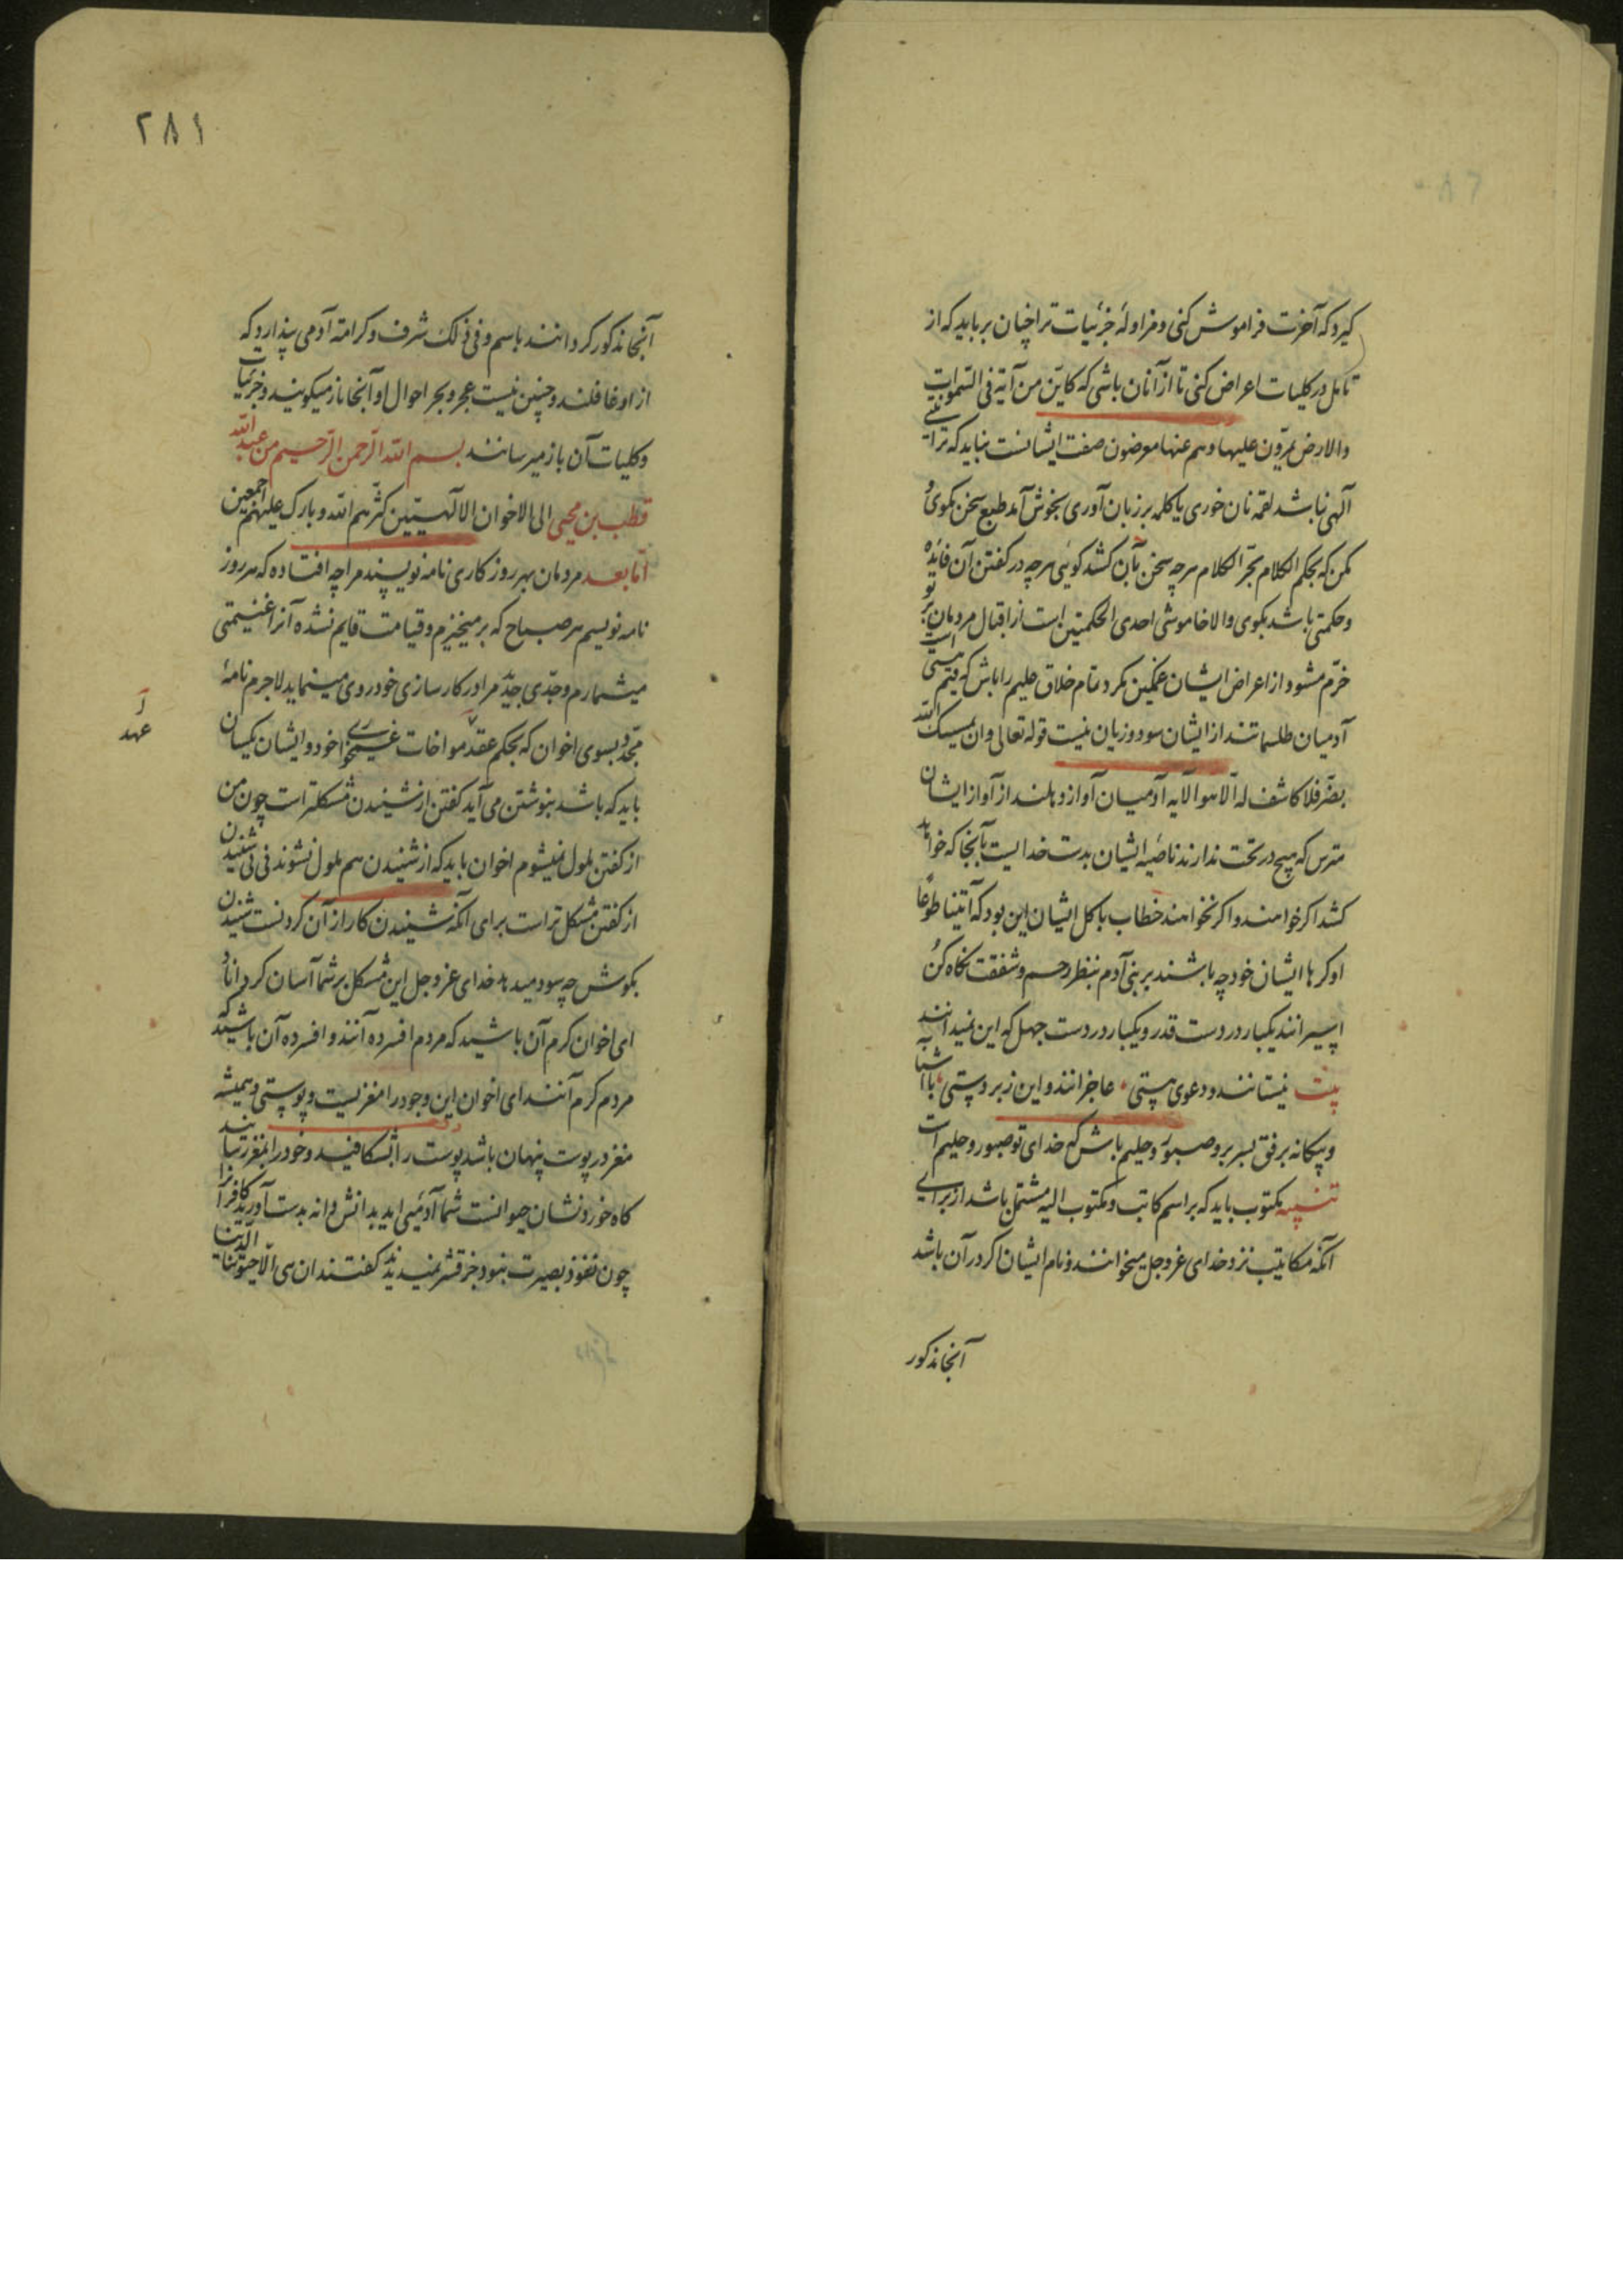 گیرد که آخرت فراموش کنی و مزاولهٔ جزئیات ترا چنان برباید که از
تامل در کلیات اعراض کنی تا از آنان باشی که کاین من آیة فی السموات
والارض یمرون علیها وهم عنها معرضون صفت ایشانست نباید که ترا نیتی
آلهی نباشد لقمه نان خوری یا کلمه بر زبان آوری بخوش آمد طبع سخن مگوی و
مکن که بحکم الکلام یجر الکلام هرچه سخن بآن کشد گوئی هرچه در گفتن آن فائده
و حکمتی باشد بگوی والا خاموشی احدی الحکمتین است از اقبال مردمان بر تو
خرم مشو و از اعراض ایشان غمگین مگرد تمام خلاق حلیم را باش که قیم هستی است
آدمیان طلسماتند از ایشان سود و زیان نیست قوله تعالی وان یمسسک الله
بضر فلا کاشف له الا هو الآیه آدمیان آواز و بلند از آواز ایشان
مترس که هیچ در تحت ندارند ناصیه ایشان بدست خدایست بآنجا که خواهد
کشد اگر خواهند و اگر نخواهند خطاب با کل ایشان این بود که أتینا طوعا
او کرها ایشان خود چه باشند بر بنی آدم بنظر رحم و شفقت نگاه کن
اسیرانند یکبار در دست قدر و یکبار در دست جهل که این نمیدانند
بیت نیستانند و دعوی هستی عاجزانند و این زبردستی با آشنا
و بیگانه برفق بسر بر و صبور و حلیم باش که خدای تو صبور و حلیم است
تنبیه مکتوب باید که بر اسم کاتب و مکتوب الیه مشتمل باشد از برای
آنکه مکاتیب نزد خدای عز وجل میخوانند و نام ایشان اگر در آن باشد
آنجا مذکور
۲۸۱
آنجا مذکور گردانند باسم و فی ذلک شرف و کرامة آدمی پندارد که
از او غافلند و چنین نیست عجر و بجر احوال او آنجا باز میگویند و جزئیات
و کلیات آن باز میرسانند بسم الله الرحمن الرحیم من عبد الله
قطب بن محیی الی الاخوان الالهیین کثرهم الله وبارک علیهم اجمعین
اما بعد مردمان بهر روزگاری نامه نویسند مرا چه افتاده که هر روز
نامه نویسم هر صباح که بر میخیزم و قیامت قایم نشده آنرا غنیمتی
میشمارم و جدی جدید مرا در کارسازی خود روی مینماید لاجرم نامهٔ
مجدد بسوی اخوان که بحکم عقد مواخات غیری خود و ایشان یکسان
عهد
باید که باشد بنوشتن می آید گفتن از شنیدن مشکلتر است چون من
از گفتن ملول نمیشوم اخوان باید که از شنیدن هم ملول نشوند نی نی شنیدن
از گفتن مشکل تر است برای آنکه شنیدن کار از آن کردنست شنیدن
بگوش چه سود میدهد خدای عز وجل این مشکل بر شما آسان گرداناد
ای اخوان گرم آن باشید که مردم افسرده آنند و افسرده آن باشید که
مردم گرم آنند ای اخوان این وجود را مغزیست و پوستی و همیشه
مغز در پوست پنهان باشد پوست را بشکافید و خود را بمغز رسانید
کاه خوردن شان حیوانست شما آدمئی اید بدانش دانه بدست آورید کافر آنرا
چون نفوذ بصیرت نبود جز قشر نمیدید گفتند ان هی الا حیوتنا الدنیا